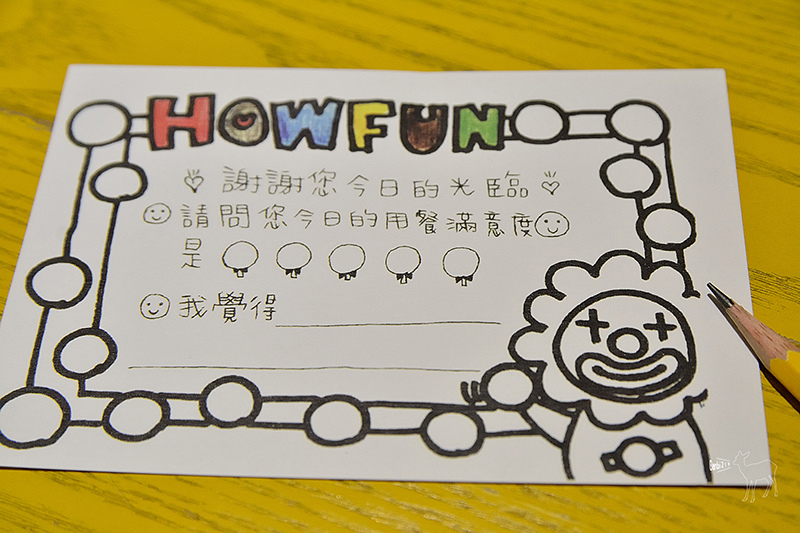 HOWFUN
謝謝您今日的光臨
請問您今日的用餐滿意度
是
我覺得